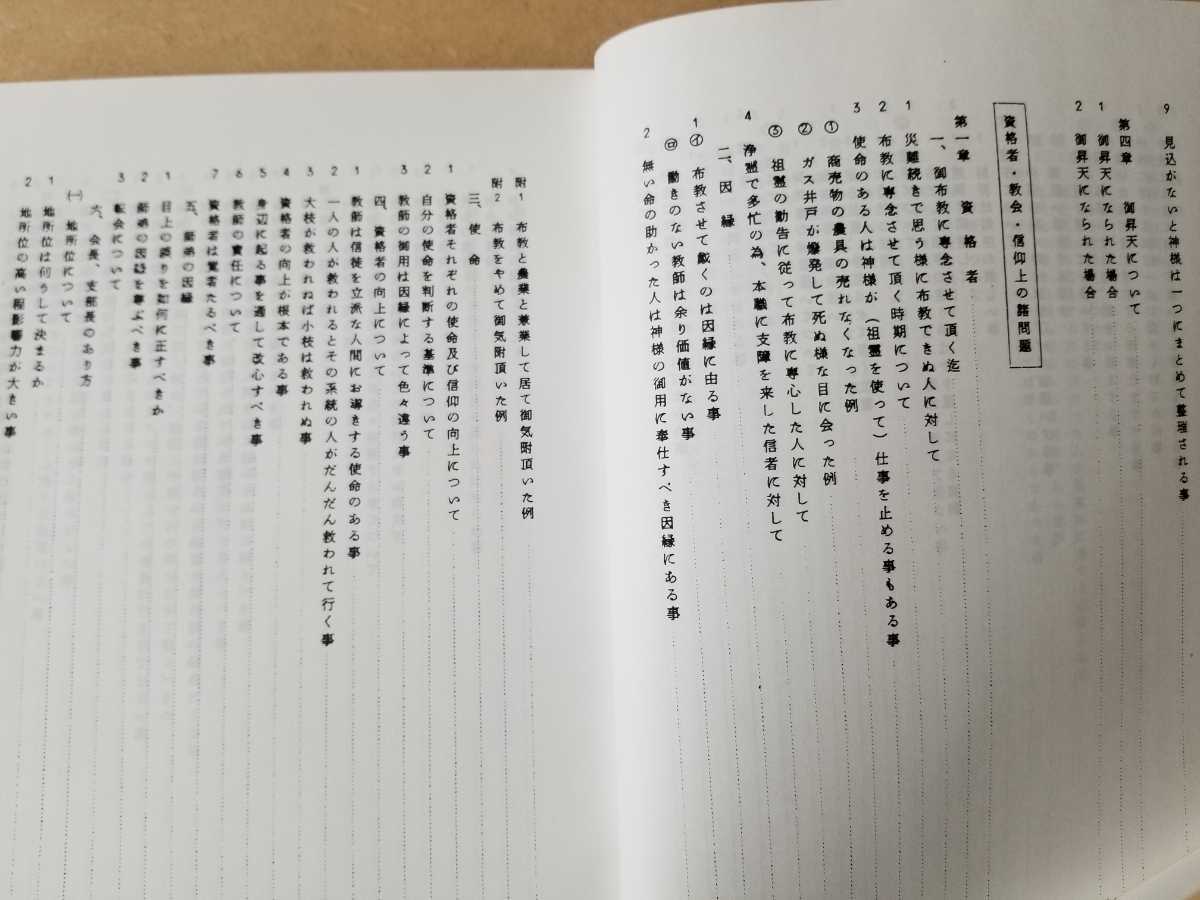 9 見込がないと神様は一つにまとめて整理される事
第四章 御昇天について
1 御昇天になられた場合
2 御昇天になられた場合
資格者・教会・信仰上の諸問題
第一章 資格者
一、御布教に専念させて頂く迄
1 災難続きで思う様に布教できぬ人に対して
2 布教に専念させて頂く時期について
3 使命のある人は神様が（祖霊を使って）仕事を止める事もある事
① 商売物の農具の売れなくなった例
② ガス井戸が爆発して死ぬ様な目に会った例
③ 祖霊の勧告に従って布教に専心した人に対して
4 浄霊で多忙の為、本職に支障を来した信者に対して
二、因縁
1 ㋑ 布教させて戴くのは因縁に由る事
㋺ 働きのない教師は余り価値がない事
2 無い命の助かった人は神様の御用に奉仕すべき因縁にある事
附1 布教と農業と兼業して居て御気附頂いた例
附2 布教をやめて御気附頂いた例
三、使命
1 資格者それぞれの使命及び信仰の向上について
2 自分の使命を判断する基準について
3 教師の御用は因縁によって色々違う事
四、資格者の向上について
1 教師は信徒を立派な人間にお導きする使命のある事
2 一人の人が救われるとその系統の人がだんだん救われて行く事
3 大枝が救われねば小枝は救われぬ事
4 資格者の向上が根本である事
5 身辺に起る事を通して改心すべき事
6 教師の責任について
7 資格者は覚者たるべき事
五、師弟の因縁
1 目上の誤りを如何に正すべきか
2 師弟の因縁を尊ぶべき事
3 転会について
六、会長、支部長のあり方
㈠ 地所位について
1 地所位は何うして決まるか
2 地所位の高い程影響力が大きい事